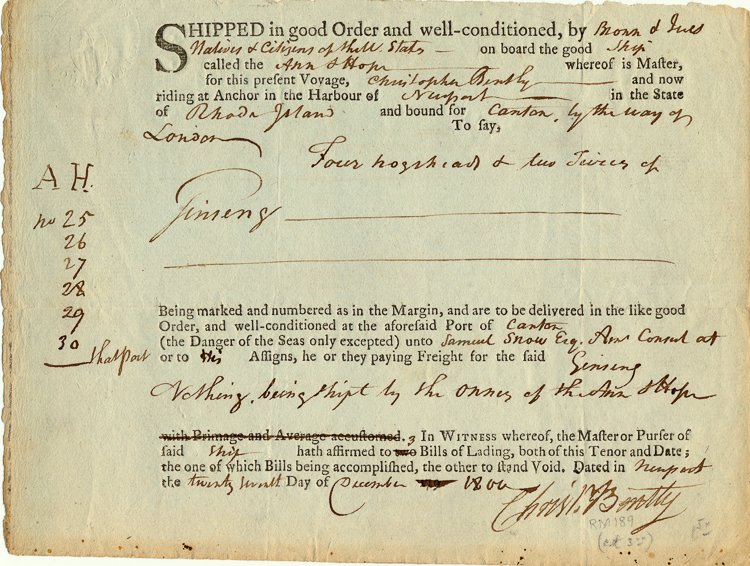 SHIPPED in good Order and well-conditioned, by Brown & Ives
Natives & Citizens of the U. States on board the good Ship
called the Ann & Hope whereof is Master,
for this present Voyage, Christopher Bently and now
riding at Anchor in the Harbour of Newport in the State
of Rhode Island and bound for Canton, by the way of
London To say,
Four hogsheads & two Tierces of
Ginseng
A H.
no 25
26
27
28
29
30
Being marked and numbered as in the Margin, and are to be delivered in the like good
Order, and well-conditioned at the aforesaid Port of Canton
(the Danger of the Seas only excepted) unto Samuel Snow Esq. Amn Consul at
that Port or to his Assigns, he or they paying Freight for the said
Ginseng
Nothing, being shipt by the owners of the Ann & Hope
with Primage and Average accustomed. 3 In WITNESS whereof, the Master or Purser of
said Ship hath affirmed to two Bills of Lading, both of this Tenor and Date;
the one of which Bills being accomplished, the other to stand Void. Dated in Newport
the twenty seventh Day of December 1800
Christ. Bently
RM189